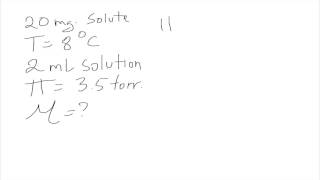 20 mg. Solute
T = 8 °C
2 mL solution
π = 3.5 torr.
M = ?